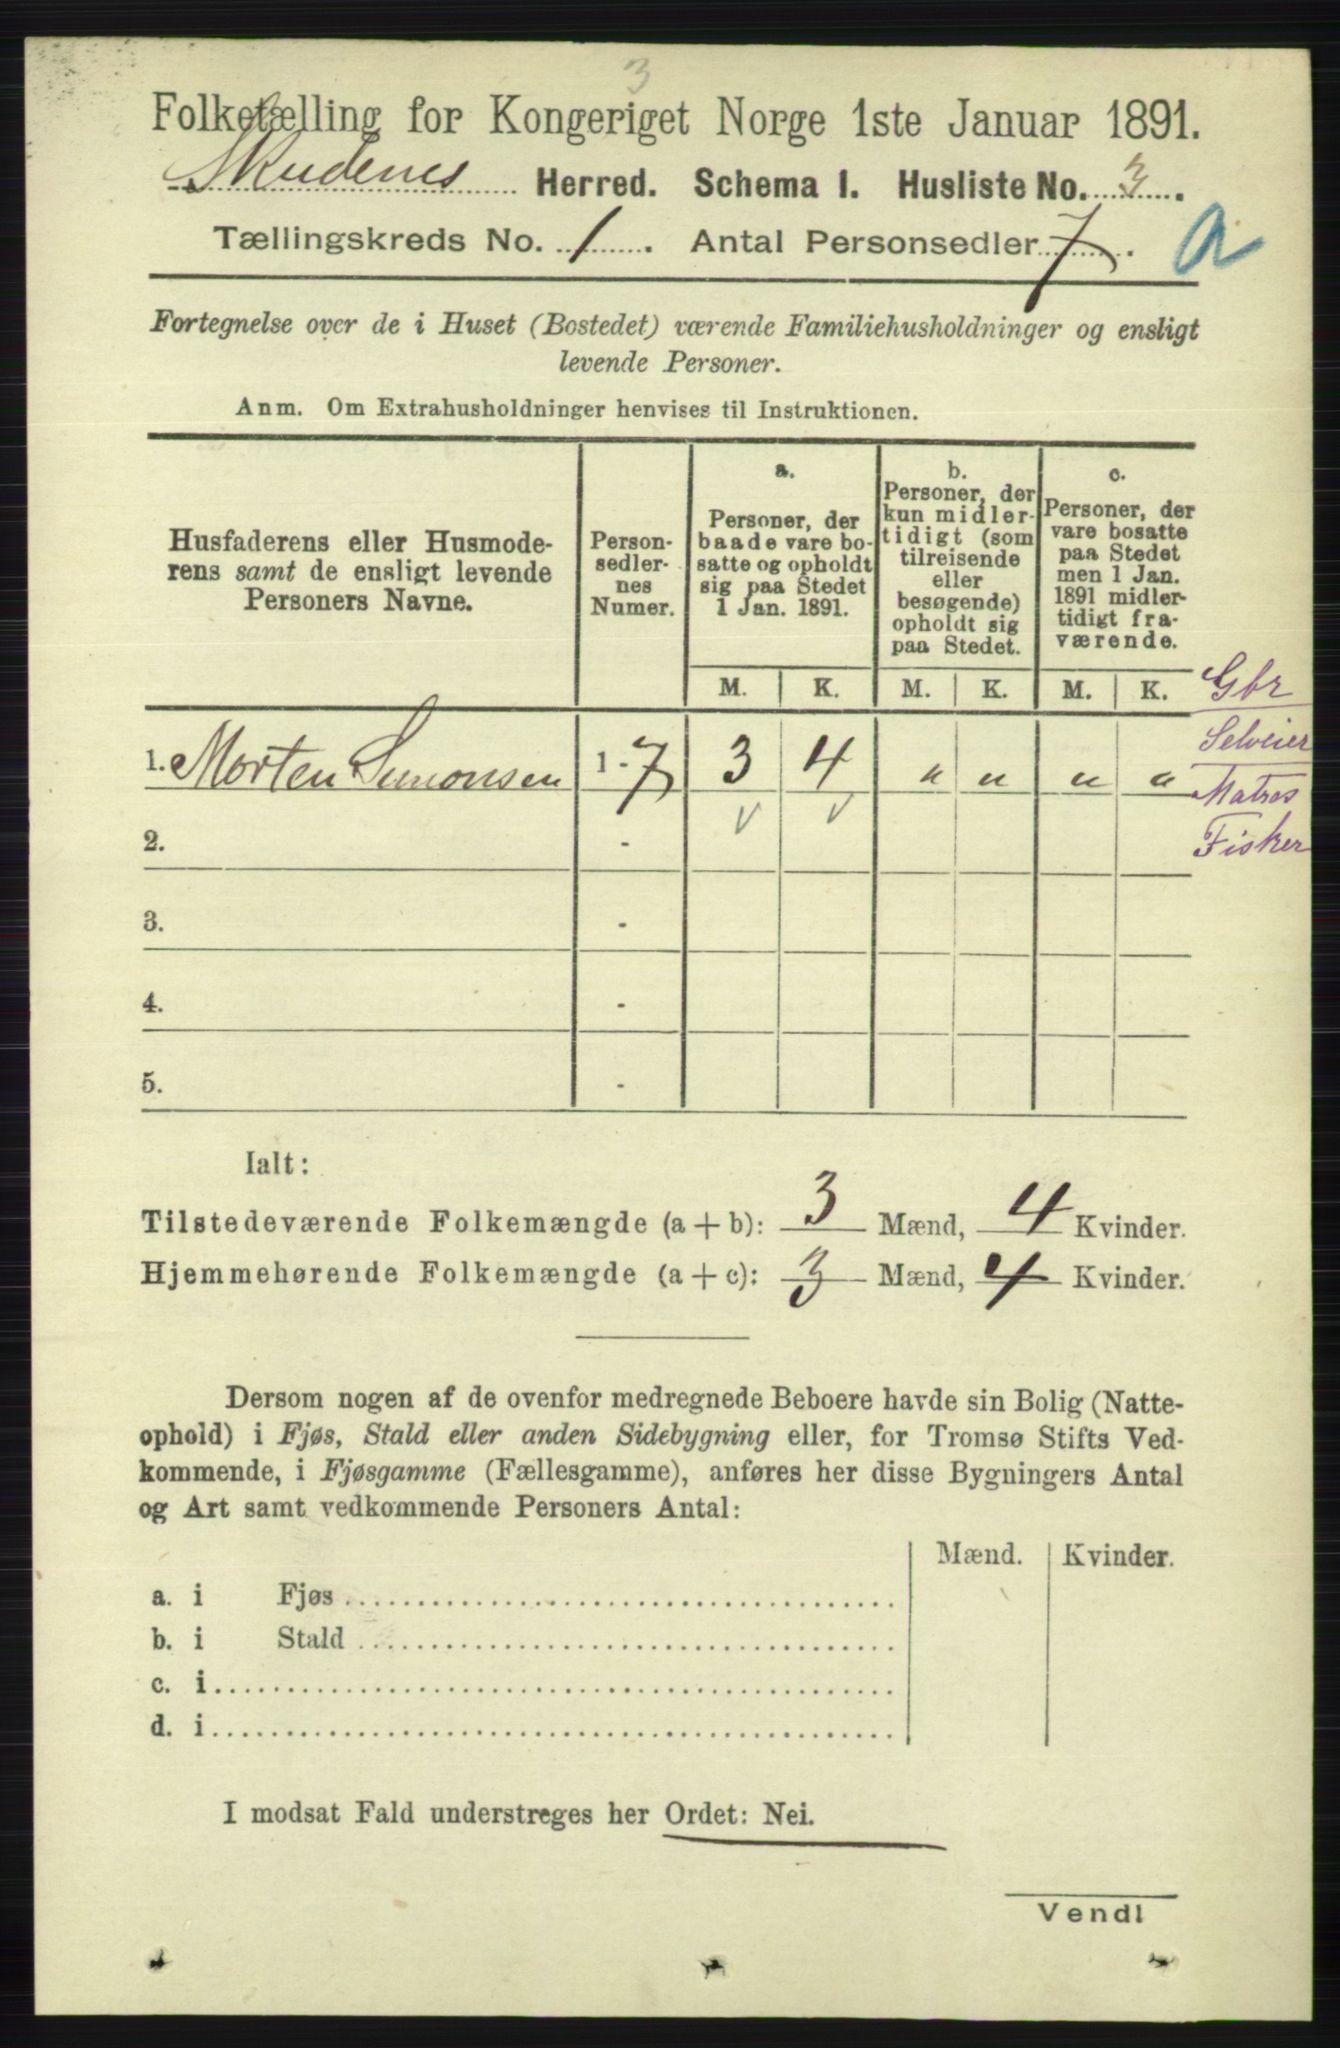 3
Folketælling for Kongeriget Norge 1ste Januar 1891.
Skudenes Herred. Schema I. Husliste No. 3.
Tællingskreds No. 1. Antal Personsedler 7. a
Fortegnelse over de i Huset (Bostedet) værende Familiehusholdninger og ensligt
levende Personer.
Anm. Om Extrahusholdninger henvises til Instruktionen.
Husfaderens eller Husmode-
rens samt de ensligt levende
Personers Navne.
Person-
sedler-
nes
Numer.
a.
Personer, der
baade vare bo-
satte og opholdt
sig paa Stedet
1 Jan. 1891.
b.
Personer, der
kun midler-
tidigt (som
tilreisende
eller
besøgende)
opholdt sig
paa Stedet.
c.
Personer, der
vare bosatte
paa Stedet
men 1 Jan.
1891 midler-
tidigt fra-
værende.
M. K. M. K. M. K.
Gbr
Selveier
Matros
Fisker
1. Morten Simonsen 1-7 3 4 " " " "
2. -
3. -
4. -
5. -
Ialt:
Tilstedeværende Folkemængde (a + b): 3 Mænd, 4 Kvinder.
Hjemmehørende Folkemængde (a + c): 3 Mænd, 4 Kvinder.
Dersom nogen af de ovenfor medregnede Beboere havde sin Bolig (Natte-
ophold) i Fjøs, Stald eller anden Sidebygning eller, for Tromsø Stifts Ved-
kommende, i Fjøsgamme (Fællesgamme), anføres her disse Bygningers Antal
og Art samt vedkommende Personers Antal:
Mænd. Kvinder.
a. i Fjøs
b. i Stald
c. i
d. i
I modsat Fald understreges her Ordet: Nei.
Vend!